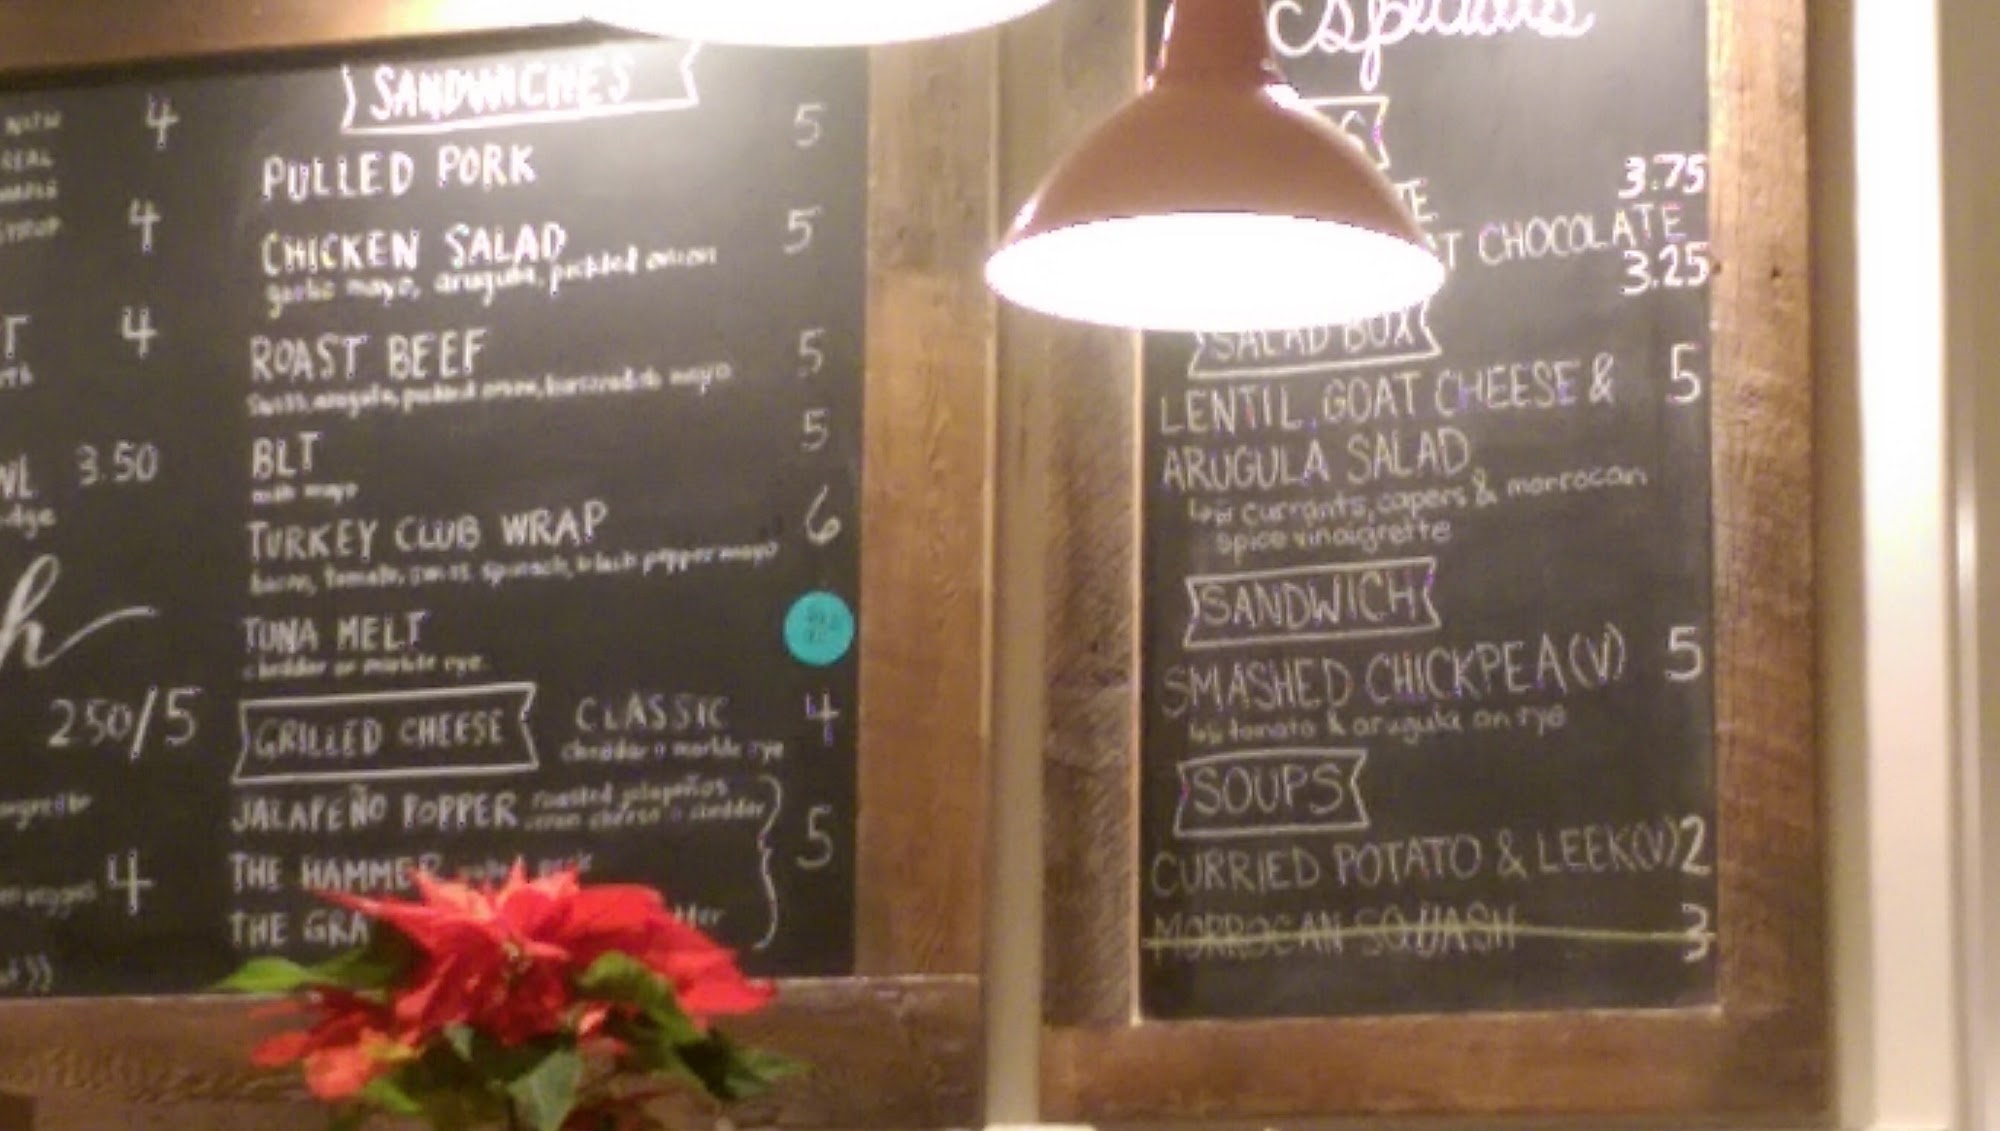 4
SANDWICHES
PULLED PORK 5
4
CHICKEN SALAD 5
garlic mayo, arugula, pickled onion
4
ROAST BEEF 5
swiss, arugula, pickled onion, horseradish mayo
BLT 5
with mayo
3.50
TURKEY CLUB WRAP 6
bacon, tomato, swiss, spinach, black pepper mayo
TUNA MELT
cheddar on marble rye
250/5
GRILLED CHEESE CLASSIC 4
cheddar on marble rye
JALAPEÑO POPPER roasted jalapeños
cream cheese & cheddar
5
THE HAMMER pulled pork
4
THE GRA
Specials
3.75
T CHOCOLATE
3.25
SALAD BOX
LENTIL, GOAT CHEESE & 5
ARUGULA SALAD
currants, capers & morrocan
spice vinaigrette
SANDWICH
SMASHED CHICKPEA (V) 5
tomato & arugula on rye
SOUPS
CURRIED POTATO & LEEK (V) 2
MORROCAN SQUASH 3